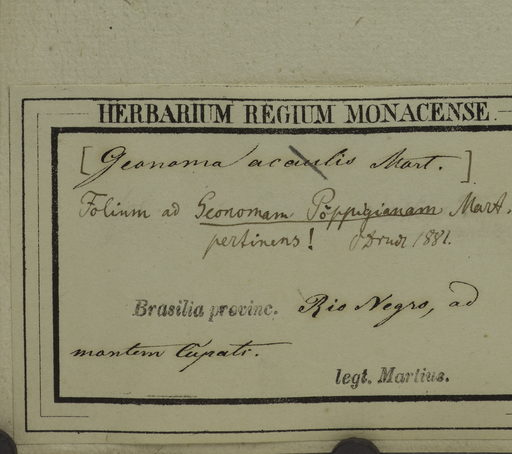 HERBARIUM REGIUM MONACENSE
[Geonoma acaulis Mart.]
Folium ad Geonomam Pöppigianam Mart.
pertinens! O Drude 1881.
Brasilia provinc. Rio Negro, ad
montem Cupati.
legt. Martius.